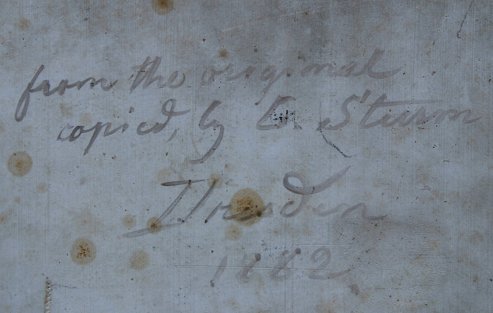 from the original
copied, by E. Sturm
Dresden
1882